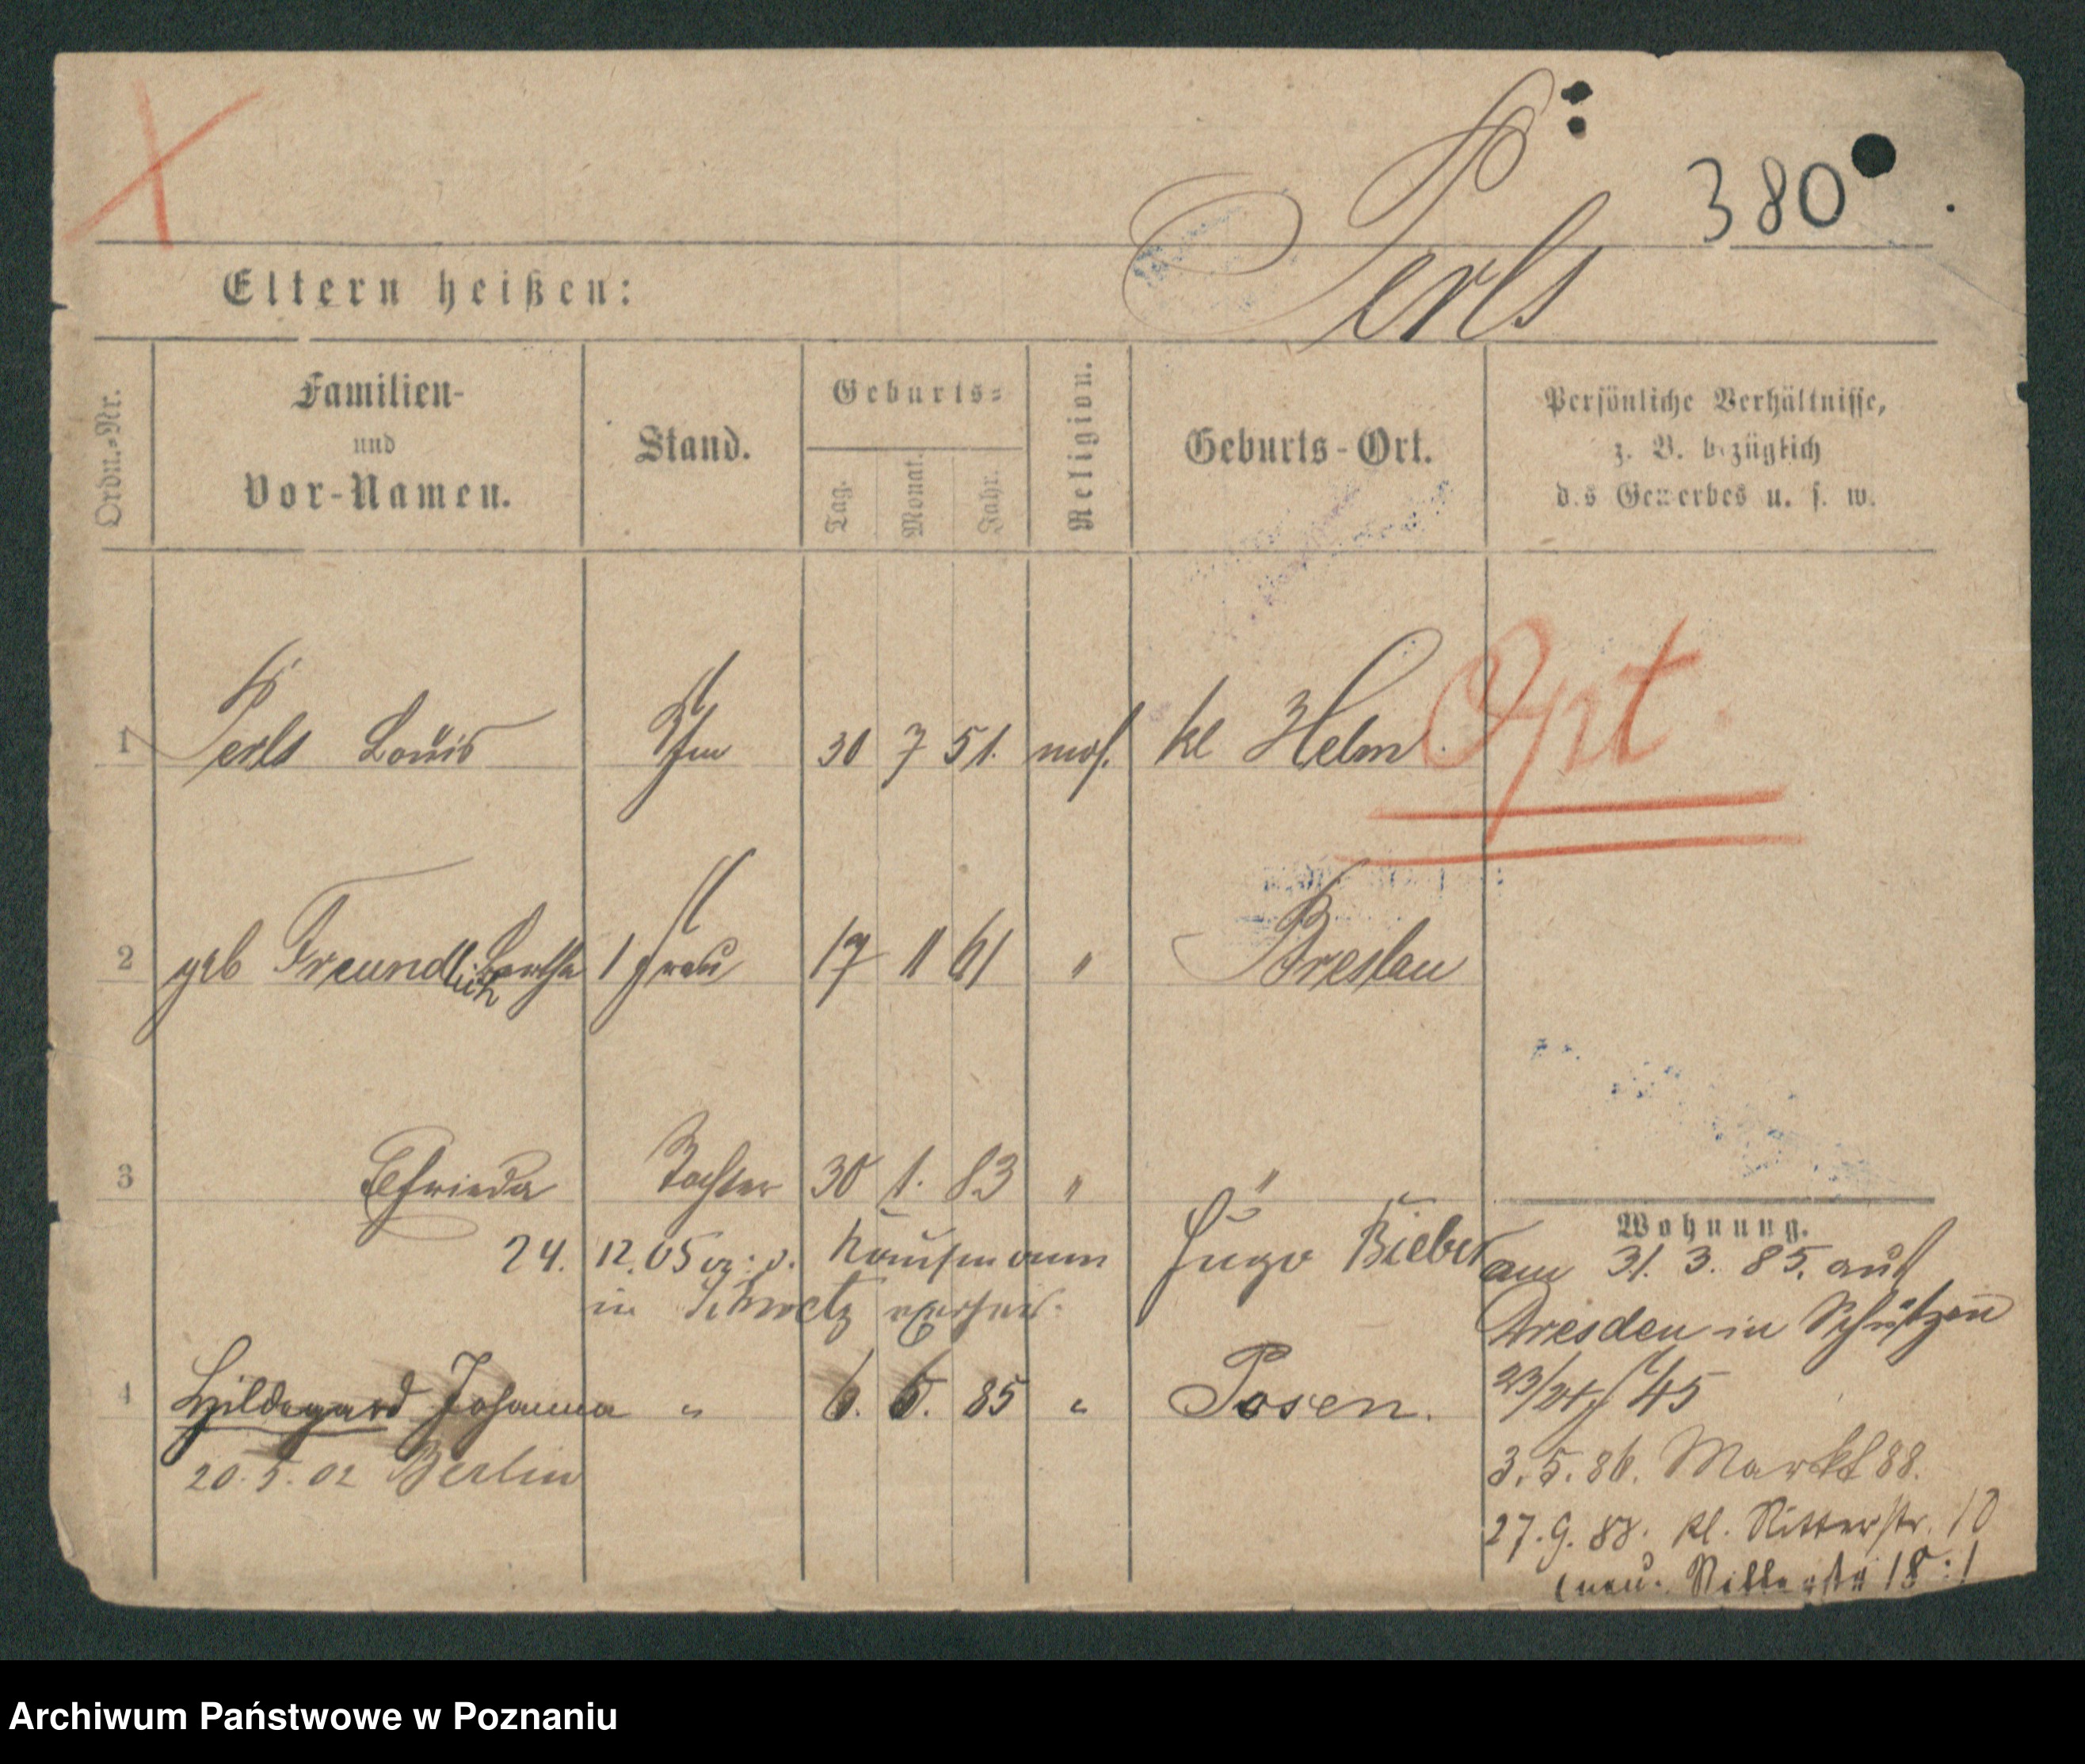 380
Perls
Eltern heißen:
Ordn.-Nr.
Familien-
und
Vor-Namen.
Stand.
Geburts-
Tag.
Monat.
Jahr.
Religion.
Geburts-Ort.
Persönliche Verhältnisse,
z. B. bezüglich
des Gewerbes u. s. w.
1 Perls Louis Kfm 30 7 51. mos. kl Helm
Opt.
2 geb Freundlich Bertha 1 Frau 17 11 61 " Breslau
3 Elfrieda Tochter 30 1. 83 " "
24. 12. 05 Kaufmann Hugo Bieber
in Schwetz
4 Hildegard Johanna " 6. 5. 85 " Posen.
20. 5. 02 Berlin
Wohnung.
am 31. 3. 85. aus
Dresden in Schützen
23/24 / 45
3. 5. 86. Markt 88.
27. 9. 88. kl. Ritterstr. 10
(neu. Ritterstr 18
Archiwum Państwowe w Poznaniu